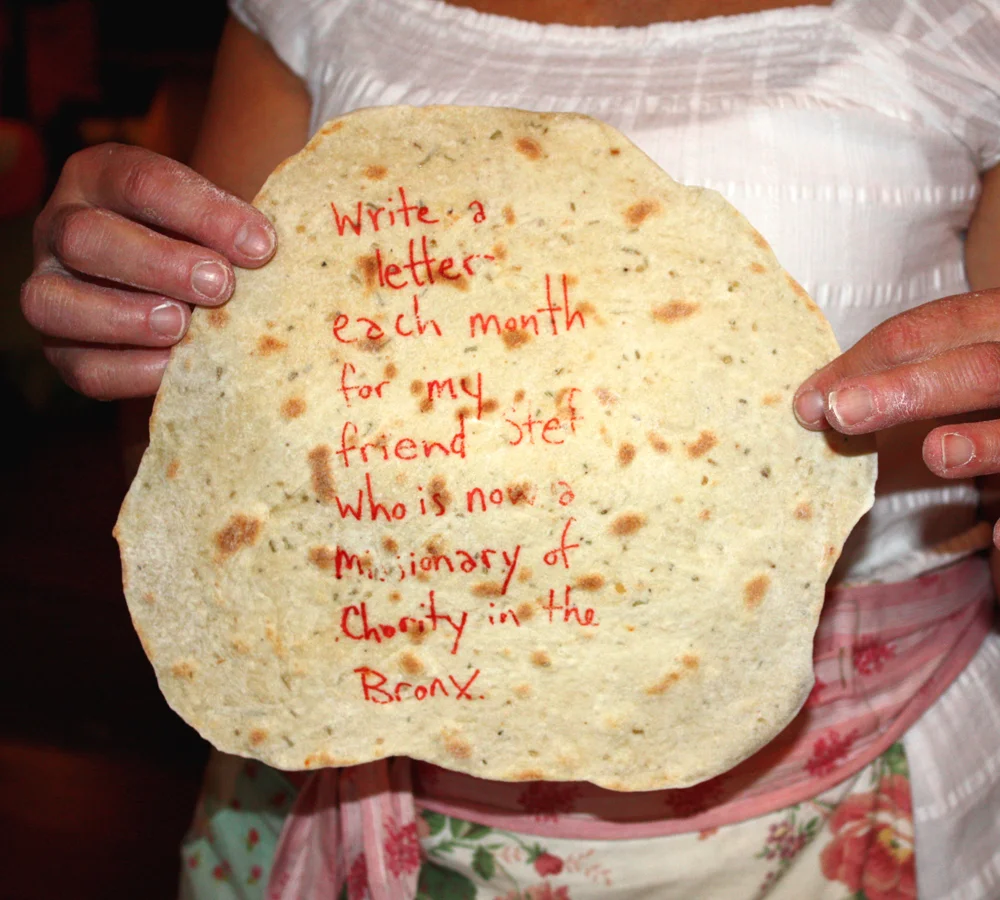 Write a
letter
each month
for my
friend Stef
who is now a
missionary of
Charity in the
Bronx.